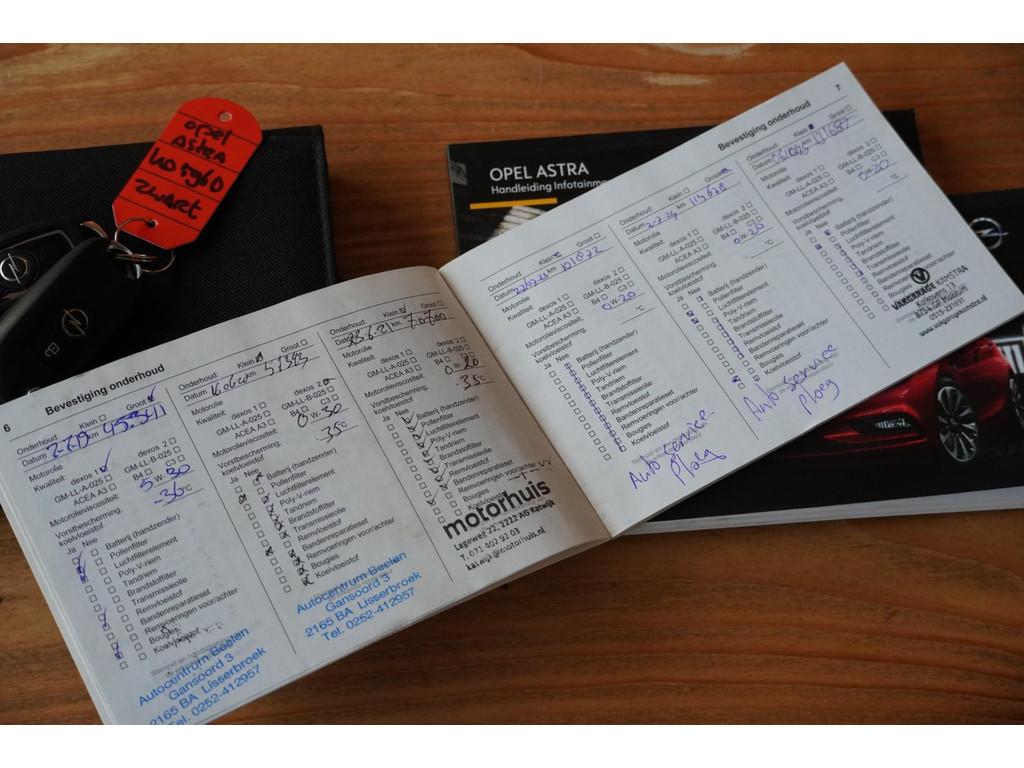 opel
ASTRA
ZWART
OPEL ASTRA
6
Bevestiging onderhoud
Onderhoud: Klein Groot
Datum km
Motorolie
Kwaliteit: dexos 1 dexos 2
GM-LL-A-025 GM-LL-B-025
ACEA A3 B4 C3
Motorolieviscositeit: 5 W-30
Vorstbescherming,
koelvloeistof
Ja Nee
Batterij (handzender)
Pollenfilter
Luchtfilterelement
Poly-V-riem
Tandriem
Brandstoffilter
Transmissieolie
Remvloeistof
Bandenreparatieset
Remvoeringen voor/achter
Bougies
Koelvloeistof
Autocentrum Beelen
Gansoord 3
2165 BA Lisserbroek
Tel. 0252-412957
Onderhoud: Klein Groot
Datum km
Motorolie
Kwaliteit: dexos 1 dexos 2
GM-LL-A-025 GM-LL-B-025
ACEA A3 B4 C3
Motorolieviscositeit: 0 W-30
Vorstbescherming,
koelvloeistof -35°C
Ja Nee
Batterij (handzender)
Pollenfilter
Luchtfilterelement
Poly-V-riem
Tandriem
Brandstoffilter
Transmissieolie
Remvloeistof
Bandenreparatieset
Remvoeringen voor/achter
Bougies
Koelvloeistof
Autocentrum Beelen
Gansoord 3
2165 BA Lisserbroek
Tel. 0252-412957
Onderhoud: Klein Groot
Datum 23.6.21 km
Motorolie
Kwaliteit: dexos 1 dexos 2
GM-LL-A-025 GM-LL-B-025
ACEA A3 B4 C3
Motorolieviscositeit: 0 W-20
Vorstbescherming,
koelvloeistof
Ja Nee
Batterij (handzender)
Pollenfilter
Luchtfilterelement
Poly-V-riem
Tandriem
Brandstoffilter
Transmissieolie
Remvloeistof
Bandenreparatieset
Remvoeringen voor/achter
Bougies
motorhuis
Lageweg 22, 2222 AG Katwijk
T. 071 402 92 03
katwijk@motorhuis.nl
7
Bevestiging onderhoud
Onderhoud: Klein Groot
Datum km 101872
Motorolie
Kwaliteit: dexos 1 dexos 2
GM-LL-A-025 GM-LL-B-025
ACEA A3 B4 C3
Motorolieviscositeit: 0W-20
Vorstbescherming,
koelvloeistof °C
Ja Nee
Batterij (handzender)
Pollenfilter
Luchtfilterelement
Poly-V-riem
Tandriem
Brandstoffilter
Transmissieolie
Remvloeistof
Bandenreparatieset
Remvoeringen voor/achter
Bougies
Koelvloeistof
Auto service
Ploeg
Onderhoud: Klein Groot
Datum 2-7-24 km 114678
Motorolie
Kwaliteit: dexos 1 dexos 2
GM-LL-A-025 GM-LL-B-025
ACEA A3 B4 C3
Motorolieviscositeit: 0W-20
Vorstbescherming,
koelvloeistof °C
Ja Nee
Batterij (handzender)
Pollenfilter
Luchtfilterelement
Poly-V-riem
Tandriem
Brandstoffilter
Transmissieolie
Remvloeistof
Bandenreparatieset
Remvoeringen voor/achter
Bougies
Koelvloeistof
Auto Service
Ploeg
Onderhoud: Klein Groot
Datum km 131687
Motorolie
Kwaliteit: dexos 1 dexos 2
GM-LL-A-025 GM-LL-B-025
ACEA A3 B4 C3
Motorolieviscositeit: 0W-20
Vorstbescherming,
koelvloeistof °C
Ja Nee
Batterij (handzender)
Pollenfilter
Luchtfilterelement
Poly-V-riem
Tandriem
Brandstoffilter
Transmissieolie
Remvloeistof
Bandenreparatieset
Remvoeringen voor/achter
Bougies
Koelvloeistof
VAKGARAGE